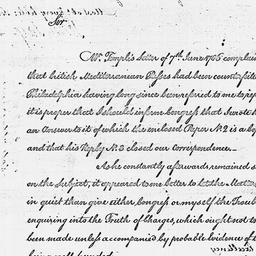 Sir
Mr. Temple's Letter of 7th June 1785 complain
that british Mediterranean Passes had been counterfeite
Philadelphia having long since been referred to me to rep
it is proper that I should inform Congress that I wrote h
an Answer to it of which the enclosed Paper No. 2 is a Co
and that his Reply No. 3 closed our correspondence.
As he constantly afterwards remained s
on the Subject, it appeared to me better to let the Matter
in quiet than give either, Congress or myself the Troub
enquiring into the Truth of Charges, which ought not to
been made unless accompanied by probable evidence of t
being well founded